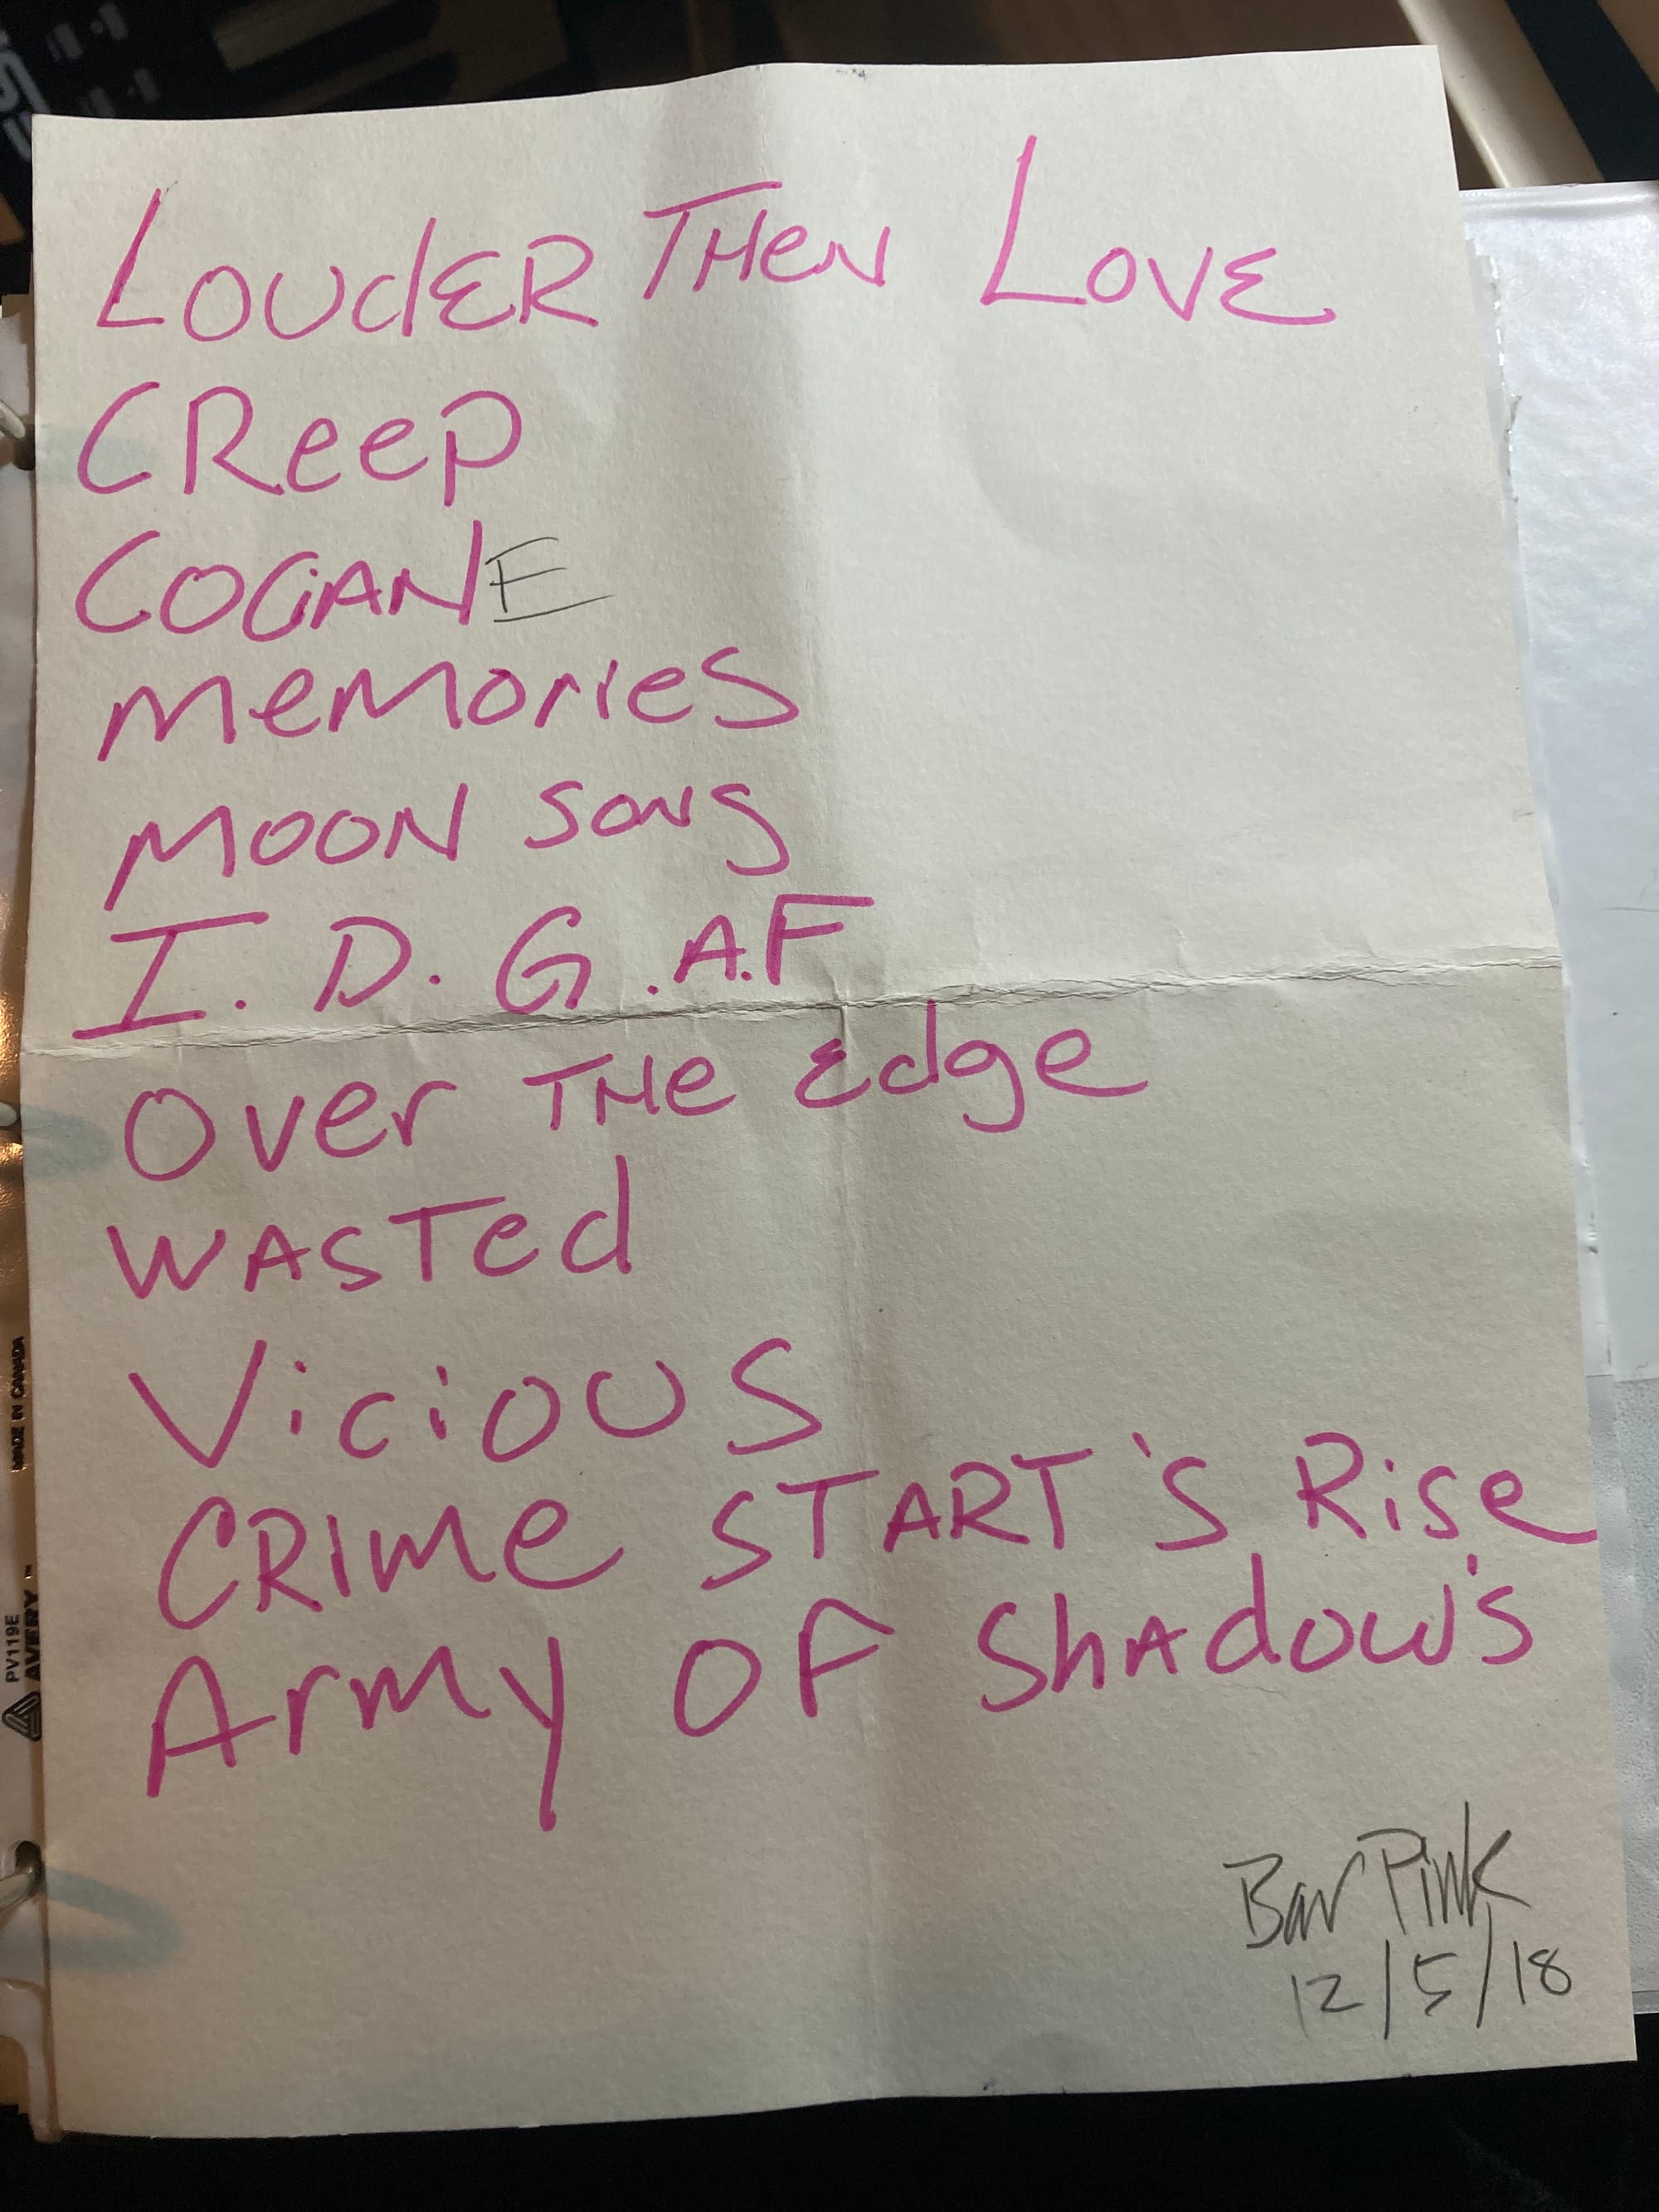 LOUdER THeN LOVE
CReep
COCiANE
MeMories
MOON SONg
I. D. G. A.F
Over THe Edge
WASTed
ViciOUS
CRIMe START'S Rise
Army OF ShAdow's
Bar Pink
12/5/18
MADE IN CANADA
PV119E
AVERY™